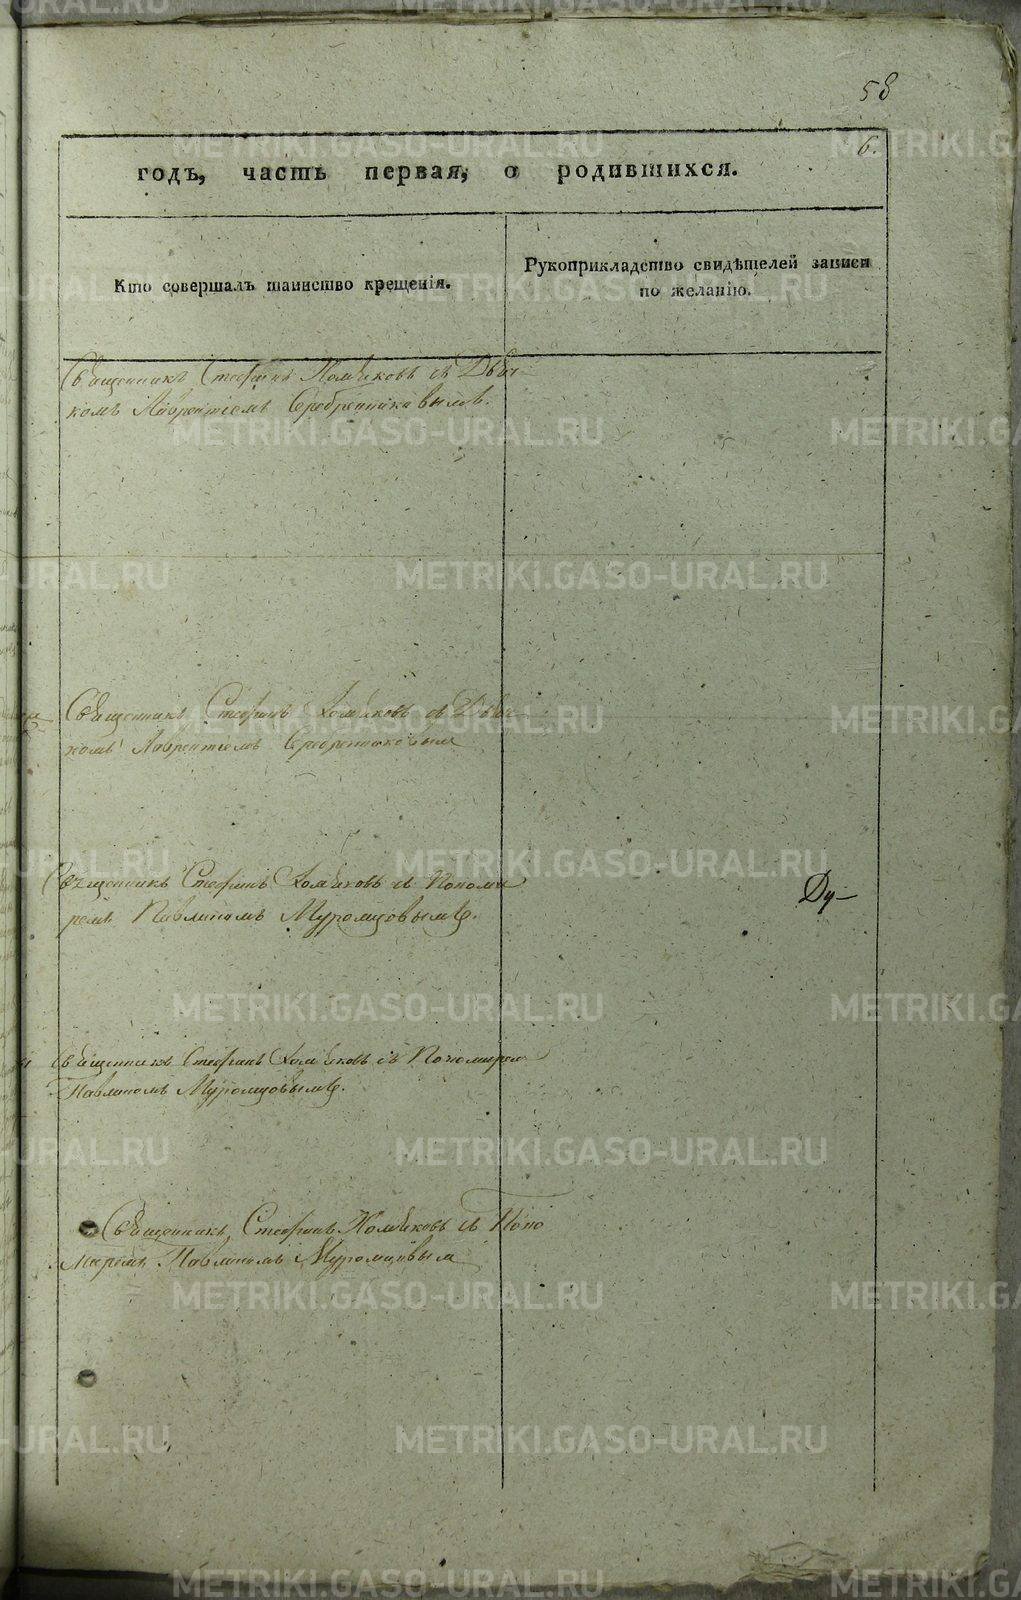 58
6.
годъ, часть первая, о родившихся.
Кто совершалъ таинство крещенія.
Рукоприкладство свидѣтелей записи
по желанію.
Священникъ Стефанъ Хомяковъ съ Дьяч-
комъ Лаврентіемъ Серебренниковымъ.
Священникъ Стефанъ Хомяковъ съ Дьяч-
комъ Лаврентіемъ Серебренниковым
Священникъ Стефанъ Хомяковъ съ Понома
ремъ Павлиномъ Муромцовымъ.
Священникъ Стефанъ Хомяковъ съ Пономарем
Павлиномъ Муромцовымъ.
Священникъ Стефанъ Хомяковъ съ Поно
маремъ Павлиномъ Муромцовым
Ду-
METRIKI.GASO-URAL.RU